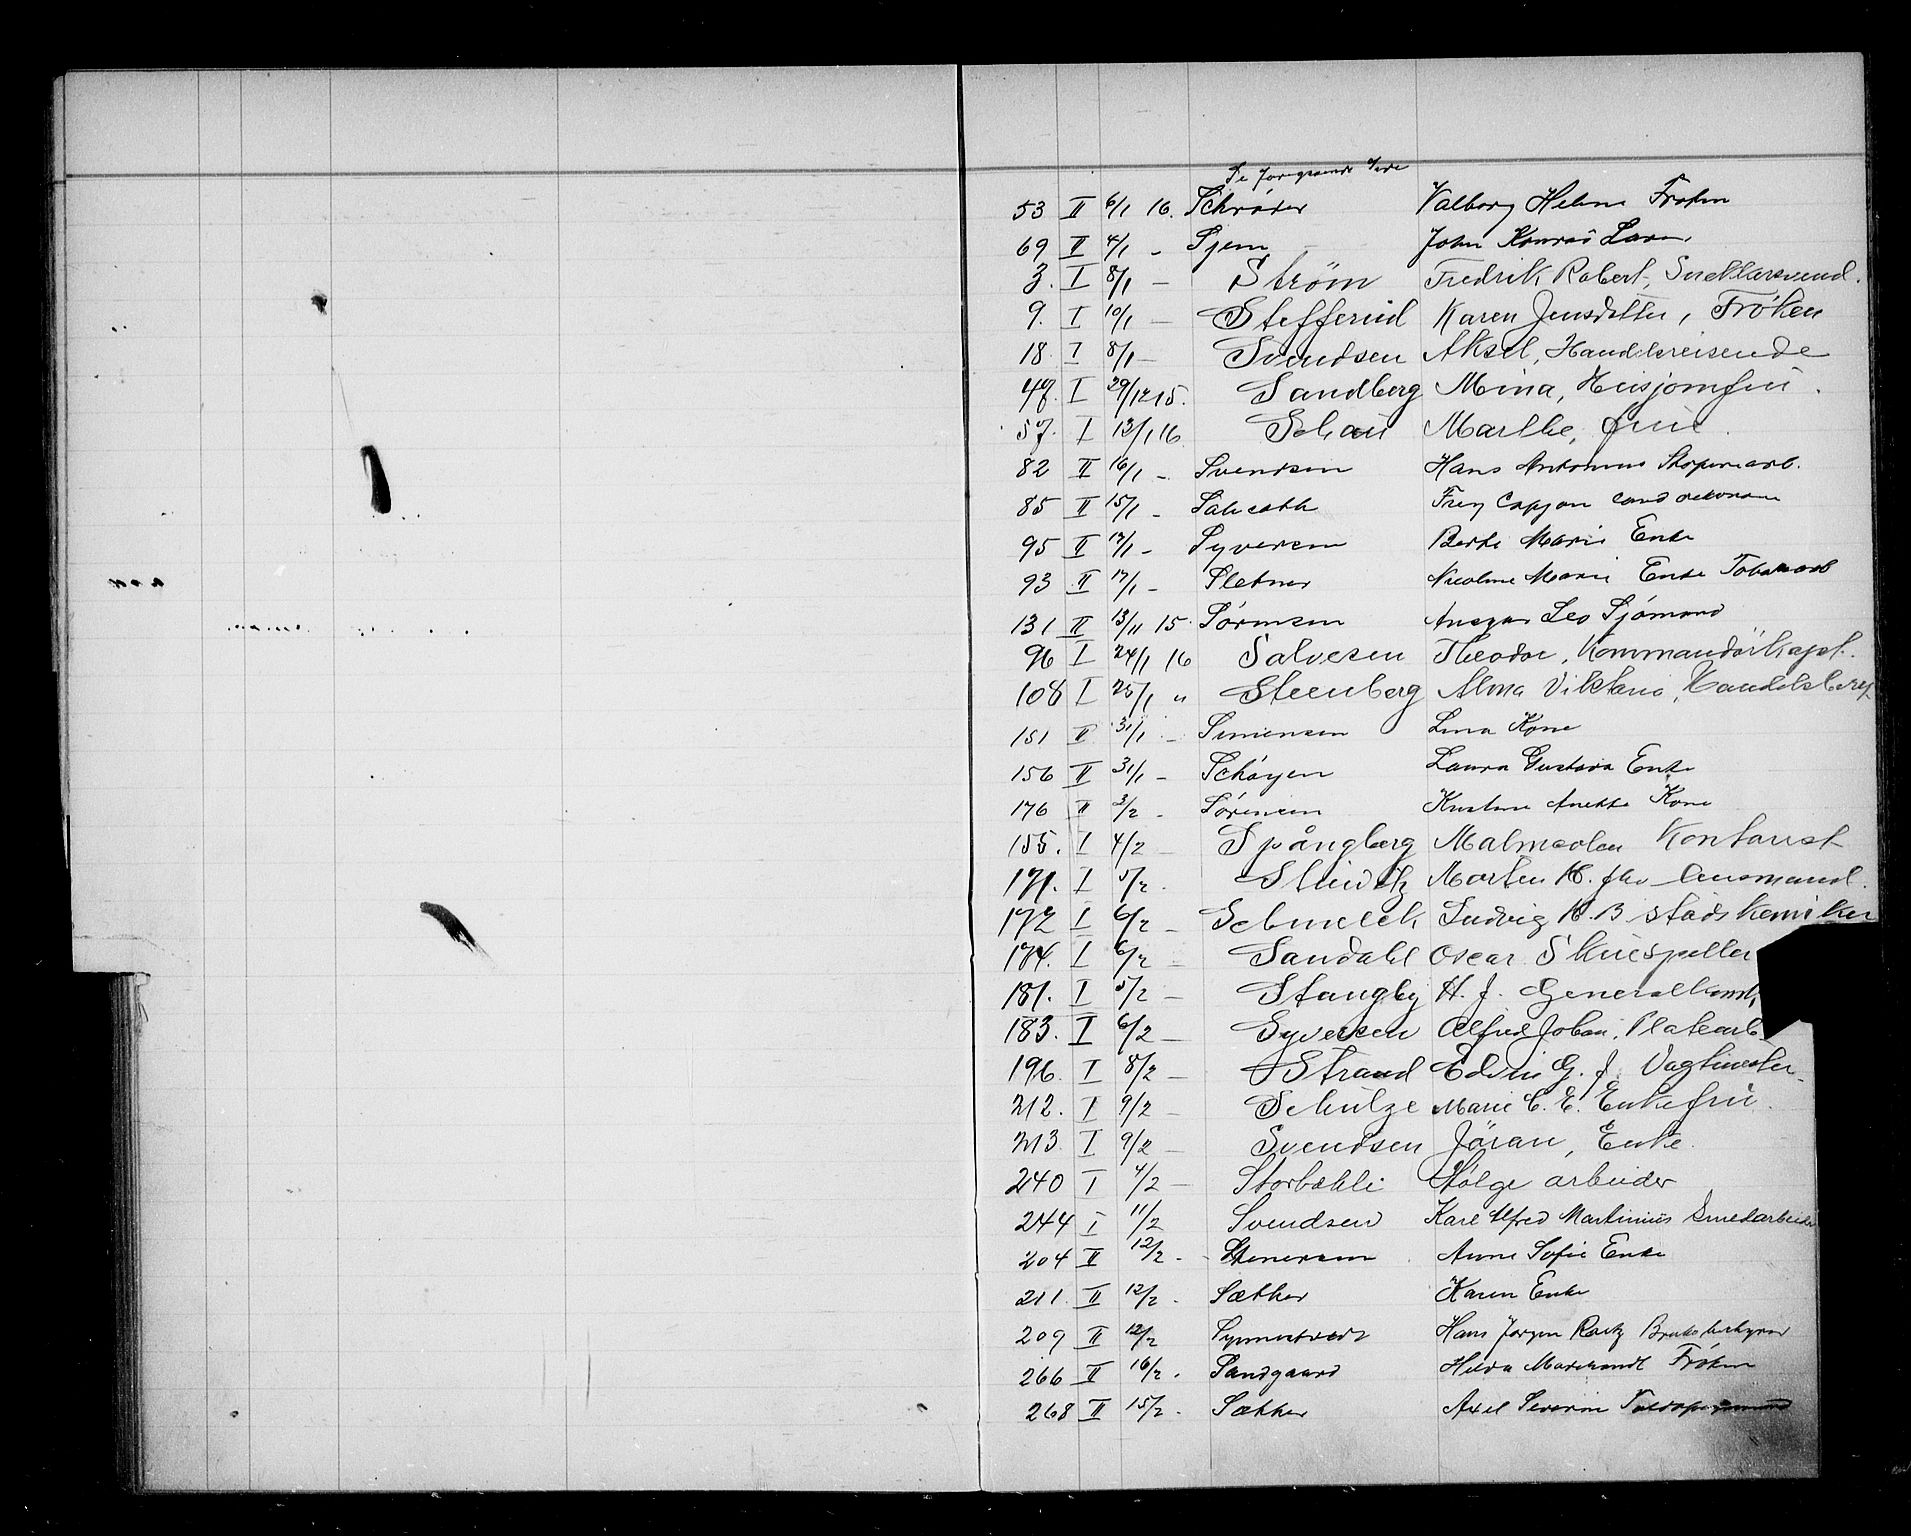 Se foregaaende side
53 II 6/1 16. Schrøder Valborg Helene Frøken
69 II 4/1 - Sjem John Konrad
3. I 8/1 - Strøm Fredrik Robert, Snekkersvend.
9. I 10/1 - Stefferud Karen Jensdatter, Frøken
18. I 8/1 - Svendsen Aksel, Handelsreisende
47. I 29/12 15. Sandberg Mina, Husjomfru.
57. I 13/1 16 Schau Marthe, frue.
82 II 16/1 - Svendsen Hans Antonius
85 II 15/1 - Frey cand oekonom
95 II 13/1 - Syversen Berthe Marie Enke
93 II 17/1 - Sletner Nicoline Marie Enke
131 II 13/11 15. Sørensen Ansgar Leo Sjömand
96 I 24/1 16 Salvesen Theodor, Kommandörkapt.
108 I 25/1 " Steenberg Alma Viktoria,
151 II 31/1 - Simensen Lina Kone
156 II 31/1 - Schøyen Laura Gustava Enke
176 II 3/2 - Sørensen Anette Kone
155. I 4/2 - Spångberg Malmcolm Kontorist
171. I 5/2 - Morten H. Lensmand.
172 I 6/2 - Schmelck Ludvig H. B stadskemiker
174. I 6/2 - Sandahl Oscar Skuespiller
181. I 5/2 - Stangby H. J. Generalkons
183. I 6/2 - Syversen Alfred Johan, Platearb
196. I 8/2 - Strand Edvin G. J. Vagtmester
212. I 9/2 - Schulze Marie C. E. Enkefru.
213 I 9/2 - Svendsen Jöran, Enke.
240 I 4/2 - Storbækli Helge arbeider
244 I 11/2 Svendsen Karl Alfred Martinius Smedarbeider
204 II 12/2 - Stenersen Anne Sofie Enke
211 II 12/2 - Sæther Karen Enke
209 II 12/2 Synnestvedt Hans Jørgen
266 II 16/2 - Sandgaard Helda Frøken
268 II 15/2 - Sæther Axel Severin